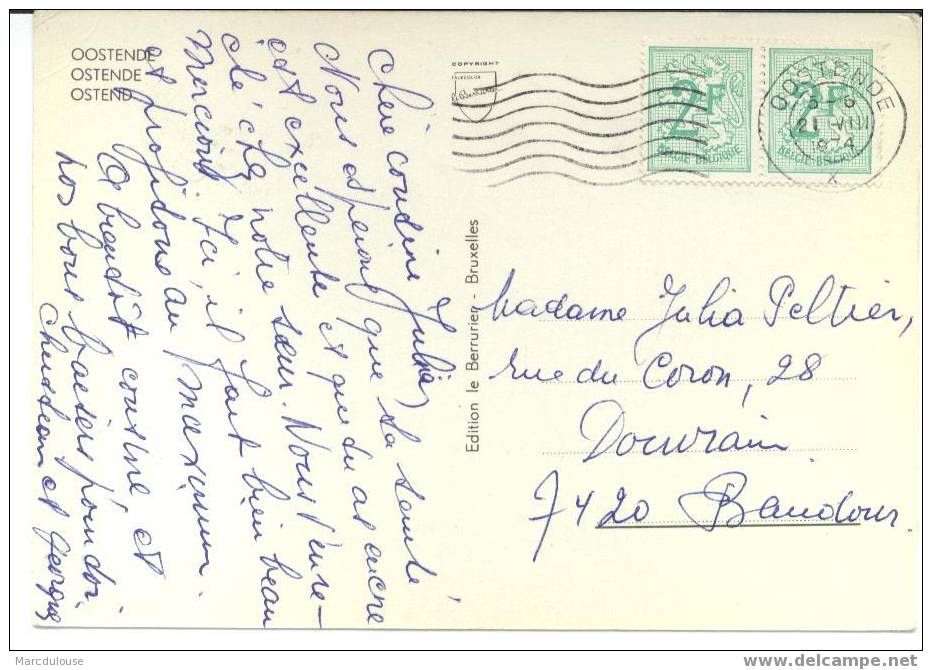 OOSTENDE
OSTENDE
OSTEND
COPYRIGHT
Chère cousine Julia,
Nous espérons que ta santé
est excellente et que du as encore
été chez notre sœur. Nous t'en re-
mercions. Ici, il fait bien beau
et profitons au maximum.
A bientôt cousine et
nos bons baisers pour doi.
et Georges
Edition le Berrurier - Bruxelles
2F
BELGIE-BELGIQUE
2F
BELGIE-BELGIQUE
OOSTENDE
21 VIII
Madame Julia Peltier,
rue du Coron, 28
Douvrain
7420 Baudour.
Marcdulouse
http://www.delcampe.net